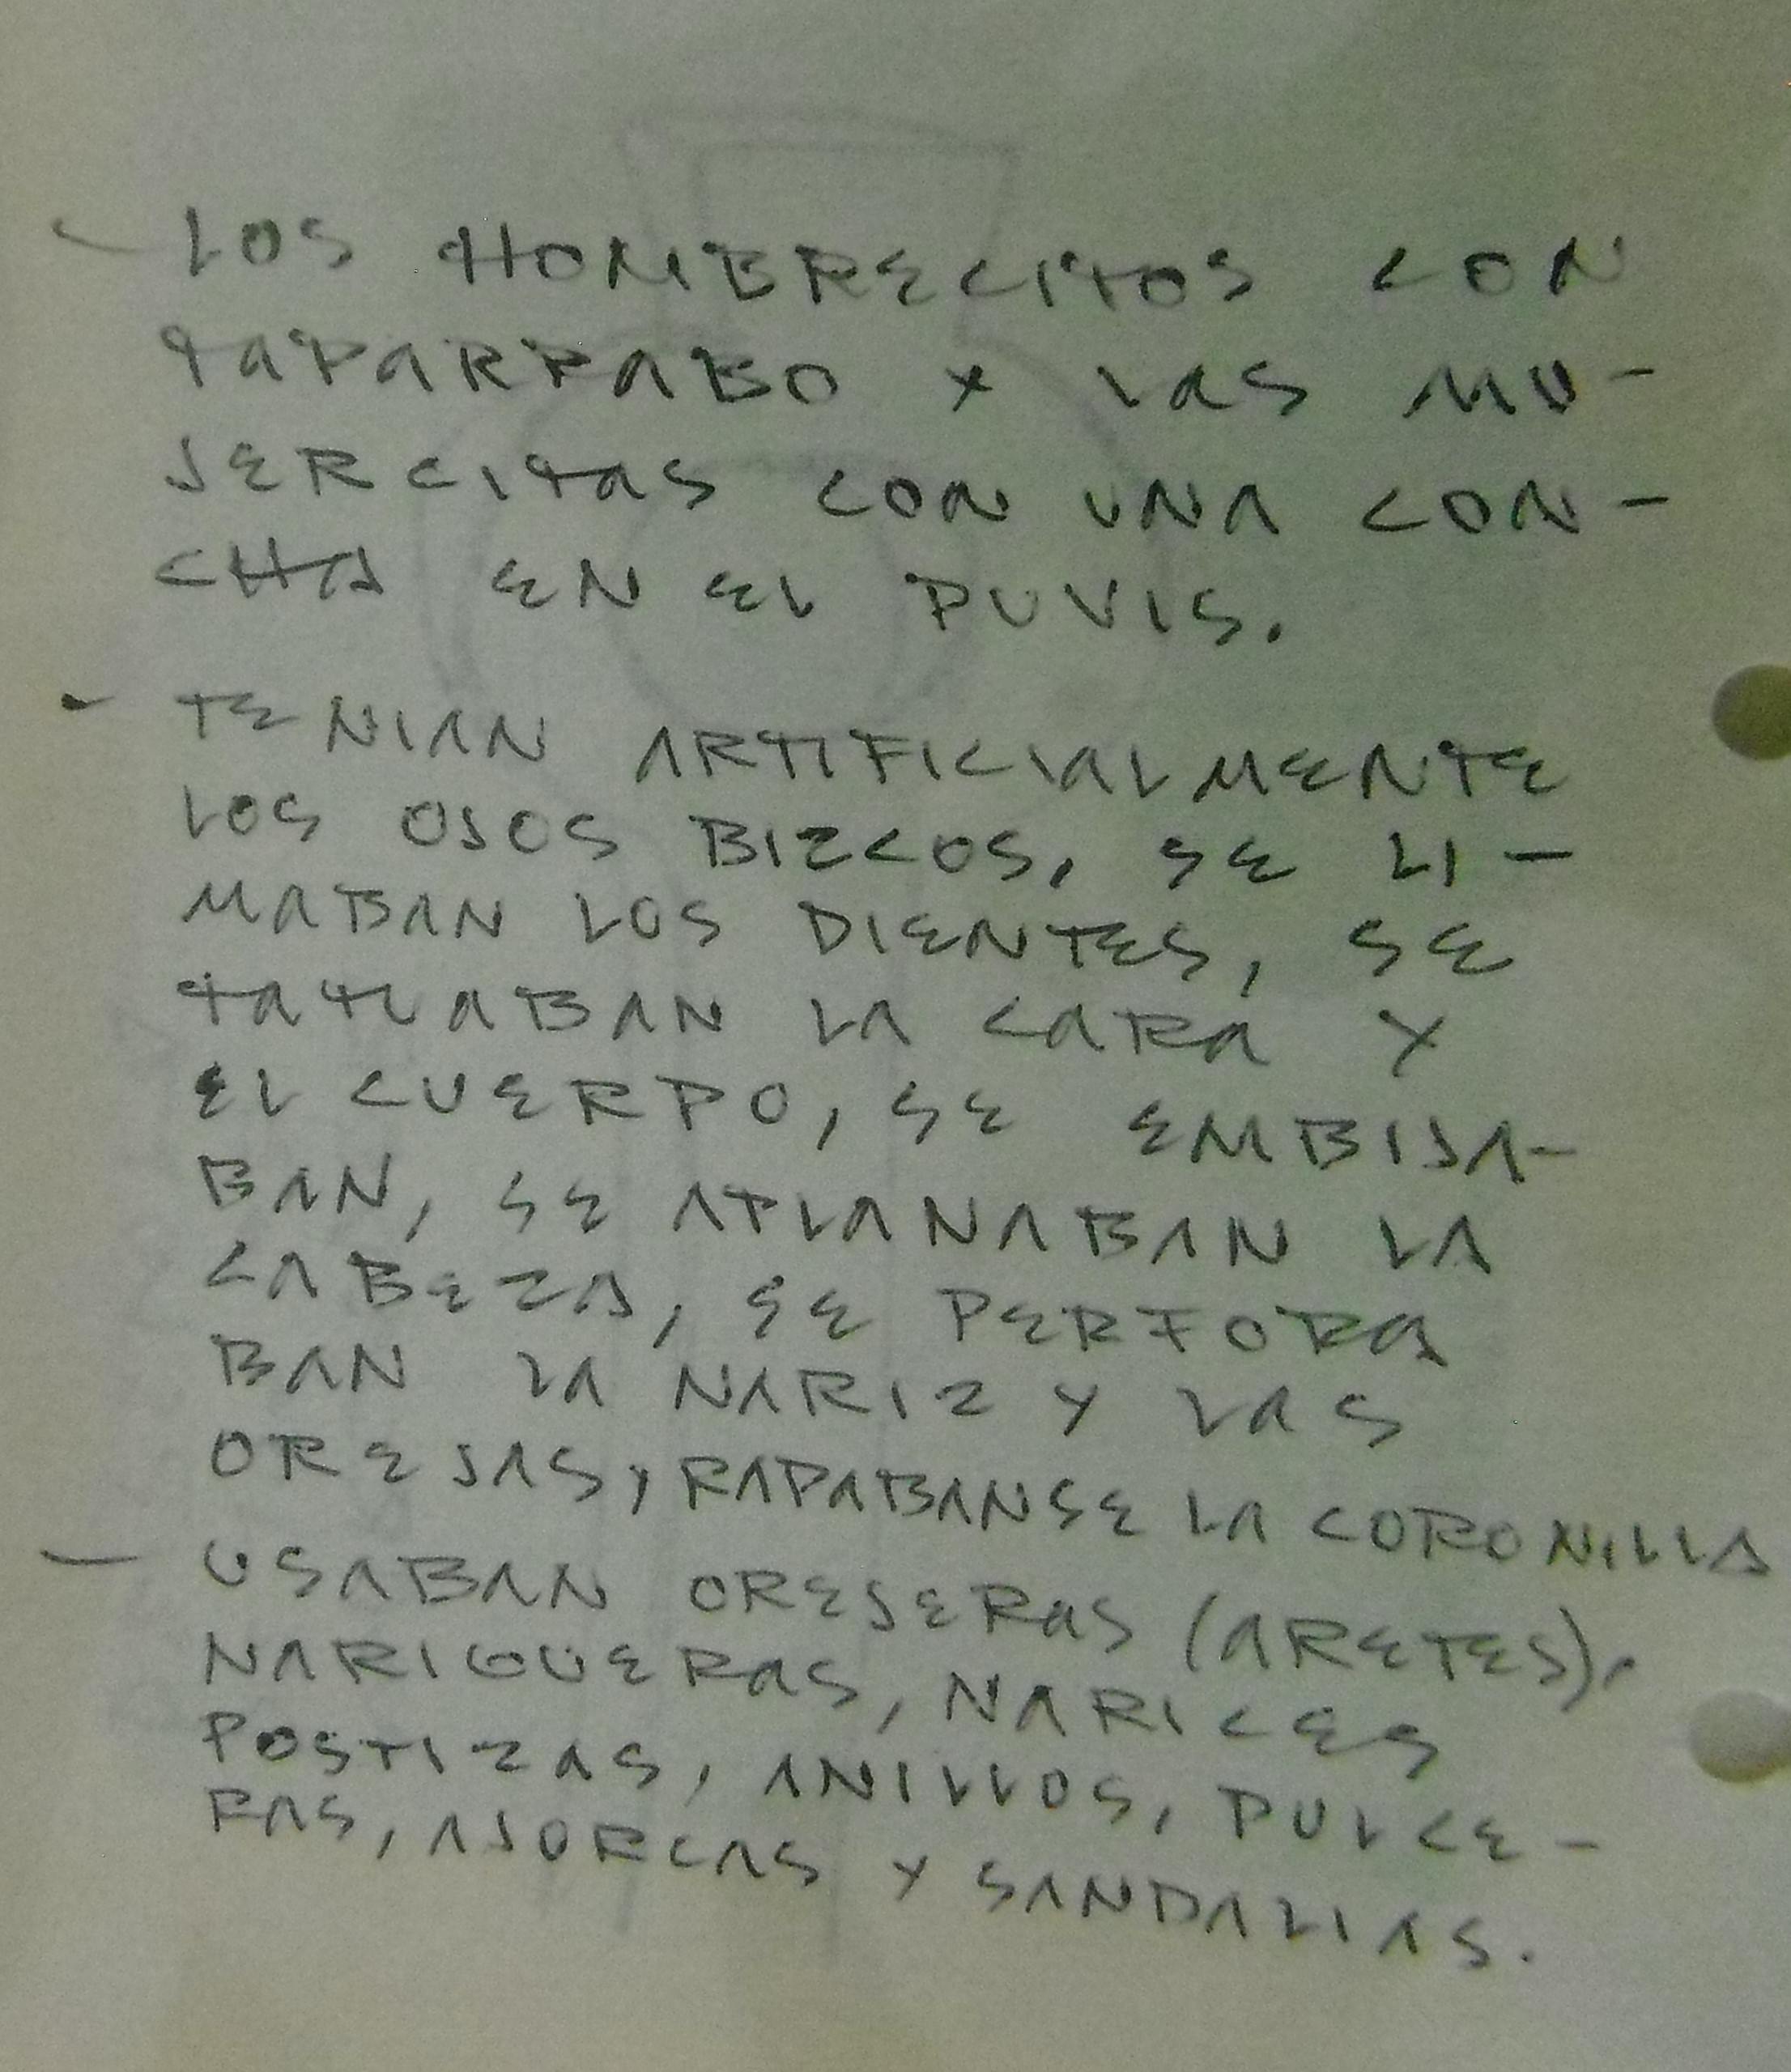 - LOS HOMBRECITOS CON
TAPARRABO Y LAS MU-
JERCITAS CON UNA CON-
CHA EN EL PUVIS.
- TENIAN ARTIFICIALMENTE
LOS OJOS BIZCOS, SE LI-
MABAN LOS DIENTES, SE
TATUABAN LA CARA Y
EL CUERPO, SE EMBIJA-
BAN, SE APLANABAN LA
CABEZA, SE PERFORA
BAN LA NARIZ Y LAS
OREJAS, RAPABANSE LA CORONILLA
- USABAN OREJERAS (ARETES),
NARIGUERAS, NARICES
POSTIZAS, ANILLOS, PULCE-
RAS, AJORCAS Y SANDALIAS.